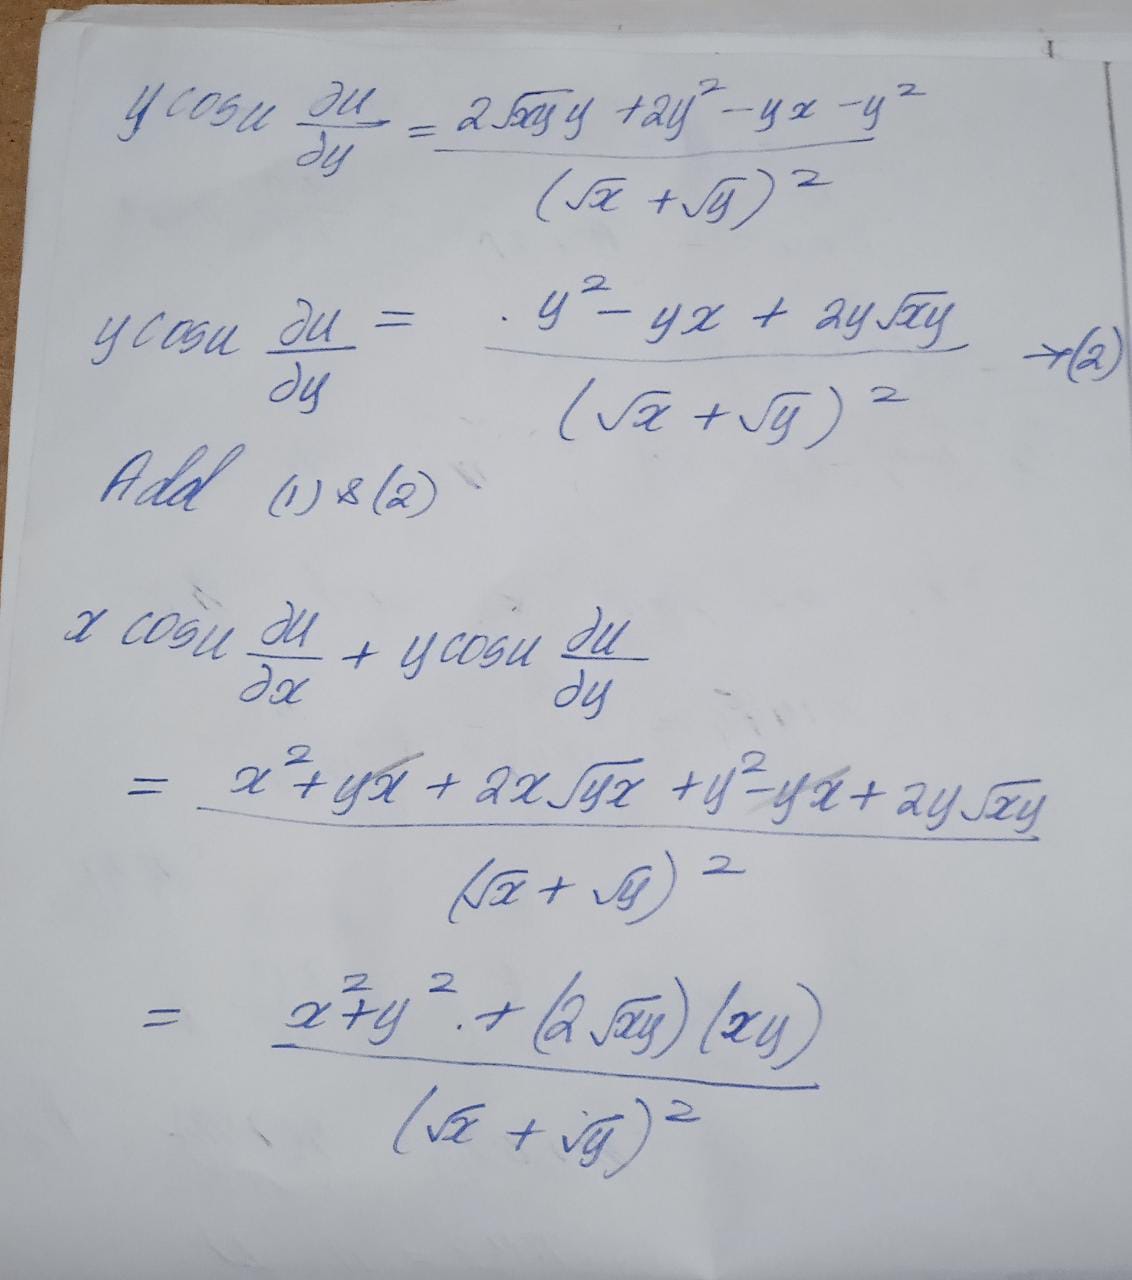 y cosu ∂u/∂y = (2√xy y + 2y² - yx - y²) / (√x + √y)²
y cosu ∂u/∂y = . (y² - yx + 2y√xy) / (√x + √y)² → (2)
Add (1) & (2)
x cosu ∂u/∂x + y cosu ∂u/∂y
= (x² + yx + 2x√yx + y² - yx + 2y√xy) / (√x + √y)²
= (x² + y² . + (2√xy) (xy)) / (√x + √y)²